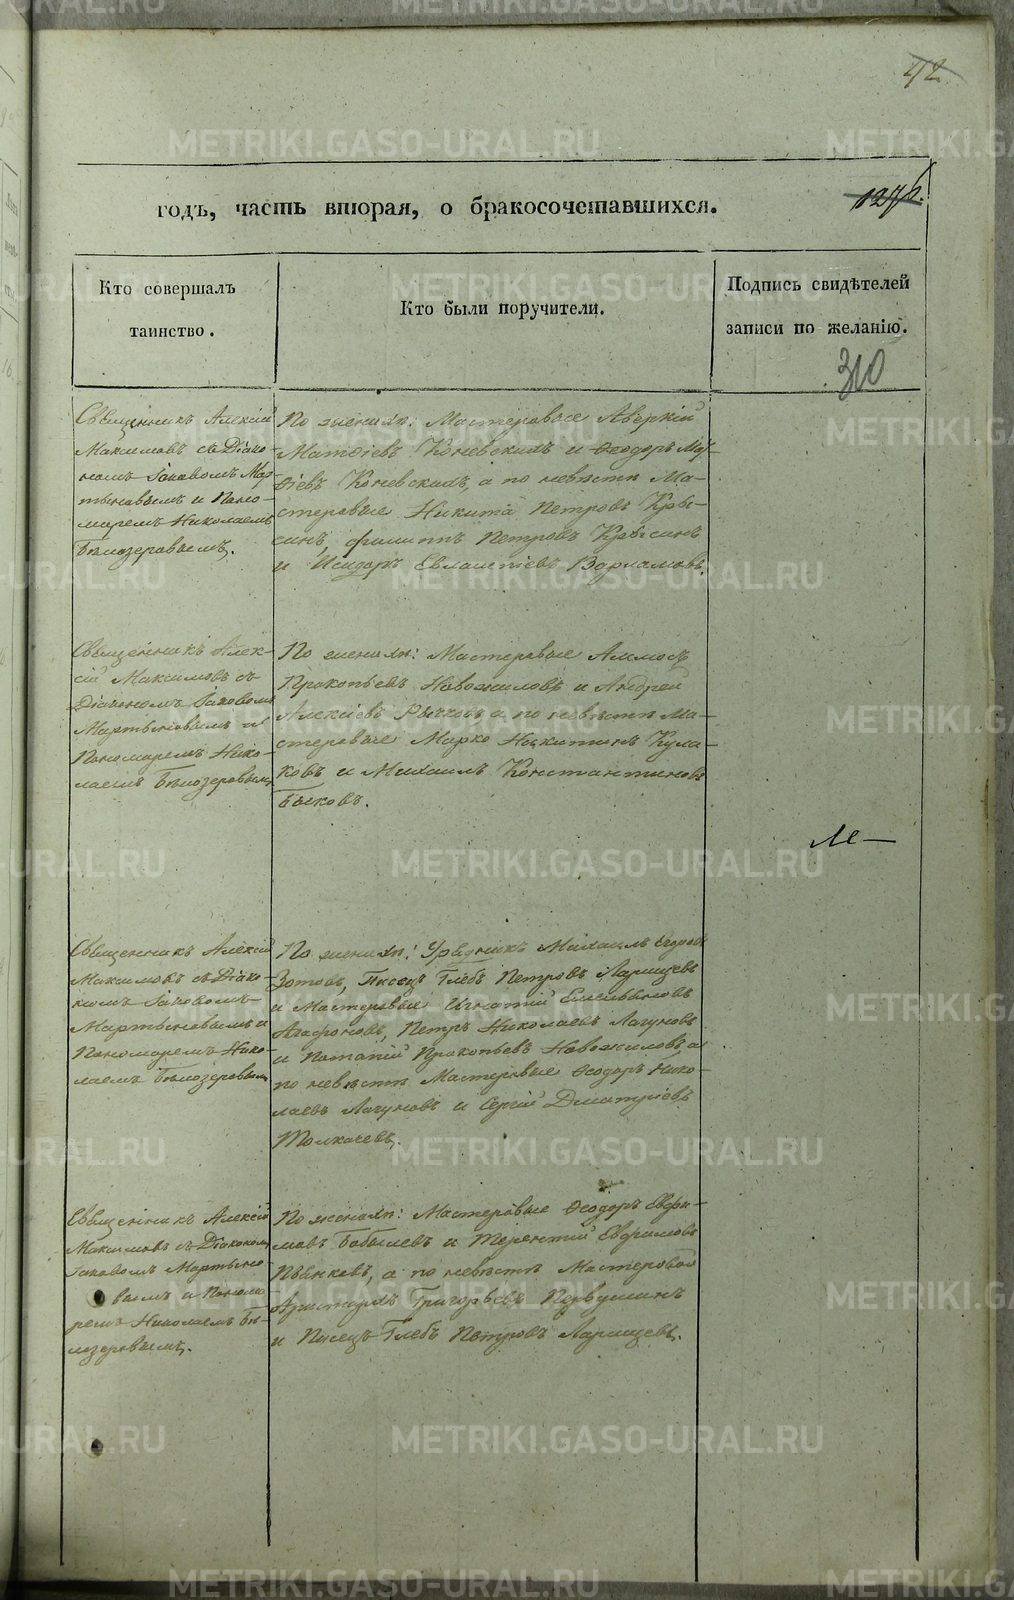 42
годъ, часть вторая, о бракосочетавшихся.
Кто совершалъ
таинство.
Кто были поручители.
Подпись свидѣтелей
записи по желанію.
310
Священникъ Алексій
Максимовъ съ Діако-
номъ Іаковомъ Мар-
тыновымъ и Поно-
маремъ Николаемъ
Бѣлозеровымъ.
По женихѣ: Мастеровые Аверкій
Матѳіевъ Коневскихъ и Ѳеодоръ Мат-
ѳіевъ Коневскихъ, а по невѣстѣ Ма-
стеровые Никита Петровъ Кры-
синъ, Филиппъ Петровъ Крысинъ
и Исидоръ Варламовъ.
Священникъ Алек-
сій Максимовъ съ
Діакономъ Іаковомъ
Мартыновымъ и
Пономаремъ Нико-
лаемъ Бѣлозеровымъ
По женихѣ: Мастеровые Аммосъ
Прокопьевъ Новожиловъ и Андрей
Алексіевъ Рычковъ а по невѣстѣ Ма-
стеровые Марко Никитинъ Кула-
ковъ и Михаилъ Константиновъ
Быковъ.
Священникъ Алексій
Максимовъ съ Діако-
номъ Іаковомъ
Мартыновымъ и
Пономаремъ Нико-
лаемъ Бѣлозеровымъ
По женихѣ: Урядникъ Михаилъ Ѳедоровъ
Зотовъ, Писецъ Глебъ Петровъ Ларищевъ
и Мастеровые Игнатій Емельяновъ
Агафоновъ, Петръ Николаевъ Лагуновъ
и Потапій Прокопьевъ Новожиловъ, а
по невѣстѣ Мастеровые Ѳеодоръ Нико-
лаевъ Лагуновъ и Сергій Дмитріевъ
Толкачевъ.
Священникъ Алексій
Максимовъ съ Діакономъ
Іаковомъ Мартыно-
вымъ и Понома-
ремъ Николаемъ Бѣ-
лозеровымъ.
По женихѣ: Мастеровые Ѳеодоръ Евфи-
мовъ Бобылевъ и Терентій Евфимовъ
Пьянковъ, а по невѣстѣ Мастеровой
Аристархъ Григорьевъ Первушинъ
и Писецъ Глебъ Петровъ Ларищевъ.
METRIKI.GASO-URAL.RU